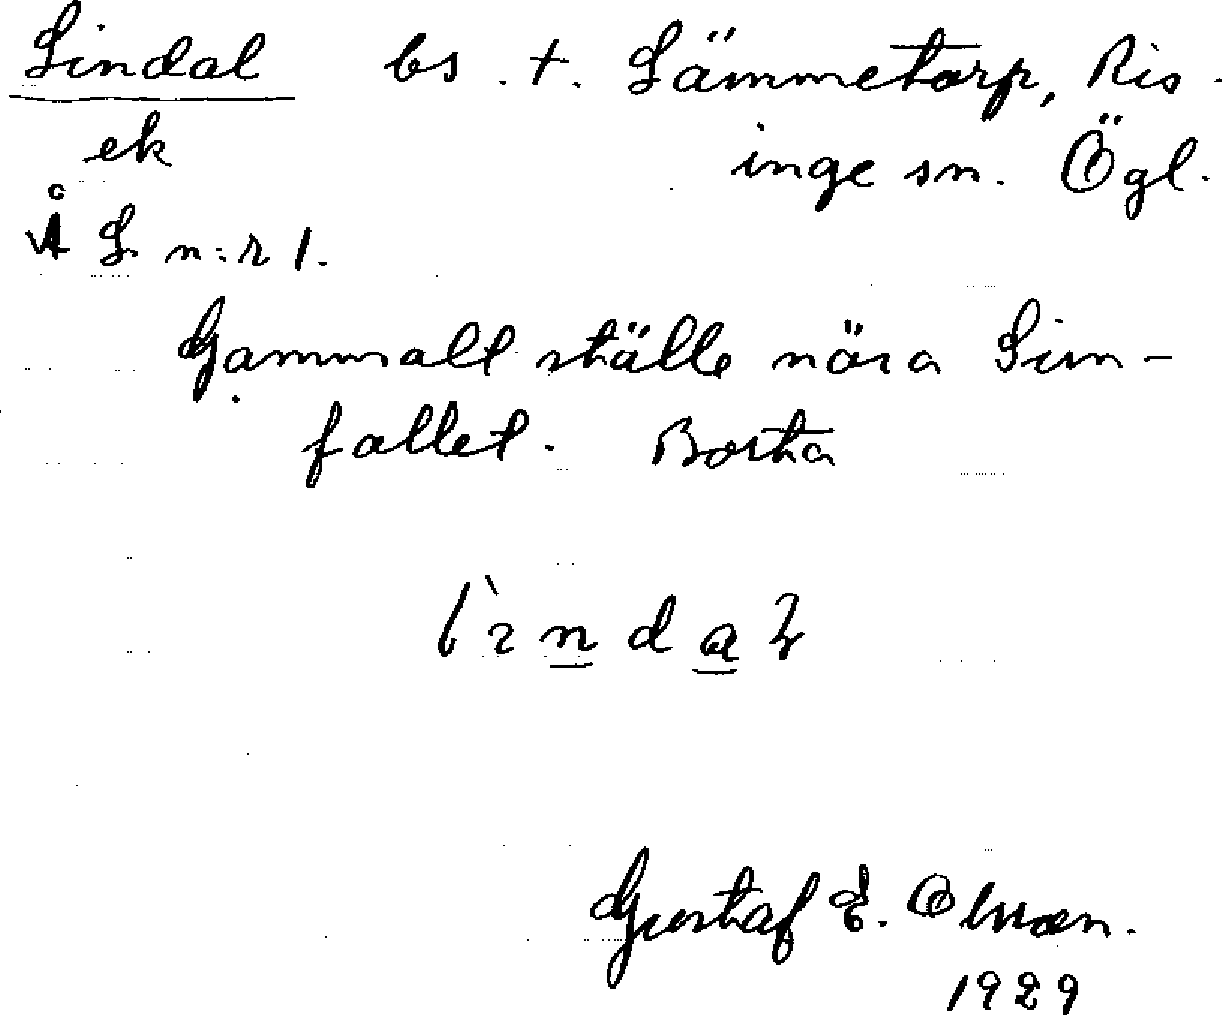 Lindal bs. t. Lämmetorp, Ris-
ek inge sn. Ögl.
Å L n:r 1.
Gammalt ställe nära Lim-
fallet. Borta
Gustaf E. Olsson.
1929